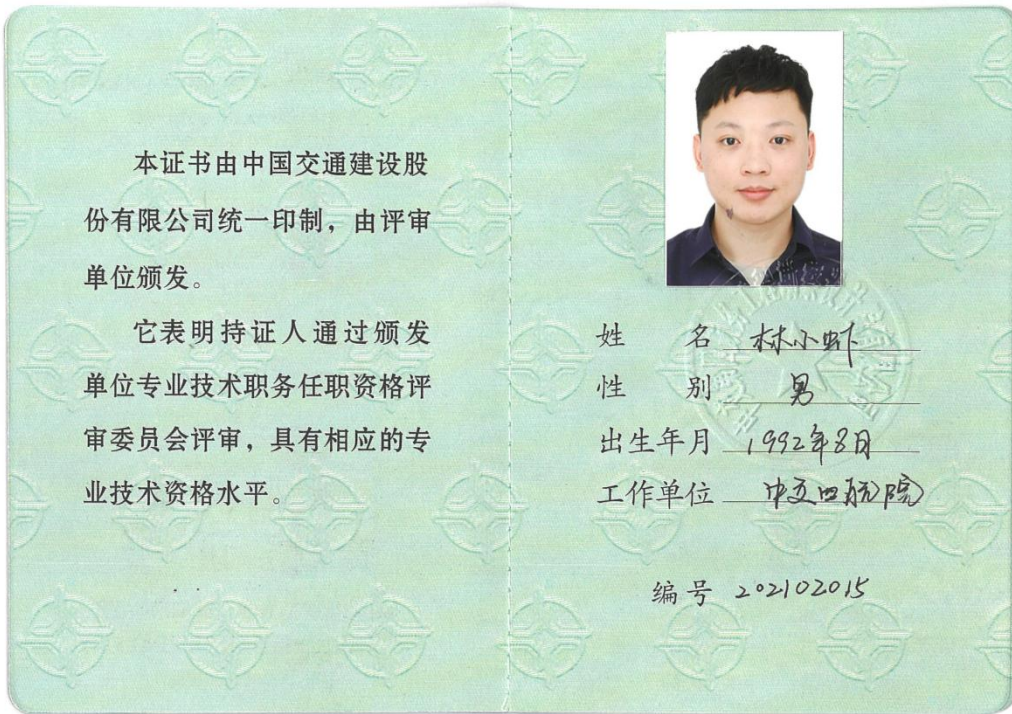 本证书由中国交通建设股
份有限公司统一印制，由评审
单位颁发。
它表明持证人通过颁发
单位专业技术职务任职资格评
审委员会评审，具有相应的专
业技术资格水平。
姓 名 林小虾
性 别 男
出生年月 1992年8月
工作单位 中交四航院
编号 202102015